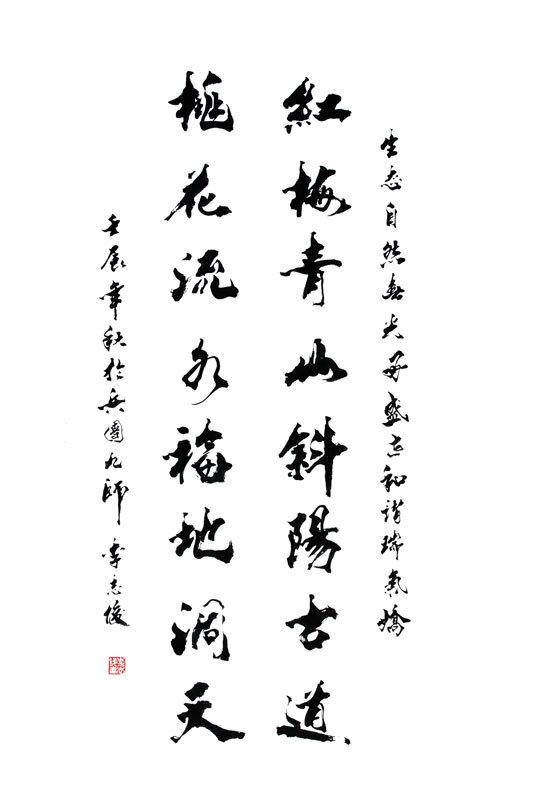 生态自然春光好盛世和谐瑞氣嬌
紅梅青山斜陽古道
桃花流水福地洞天
壬辰年秋於兵團九師 李志俊